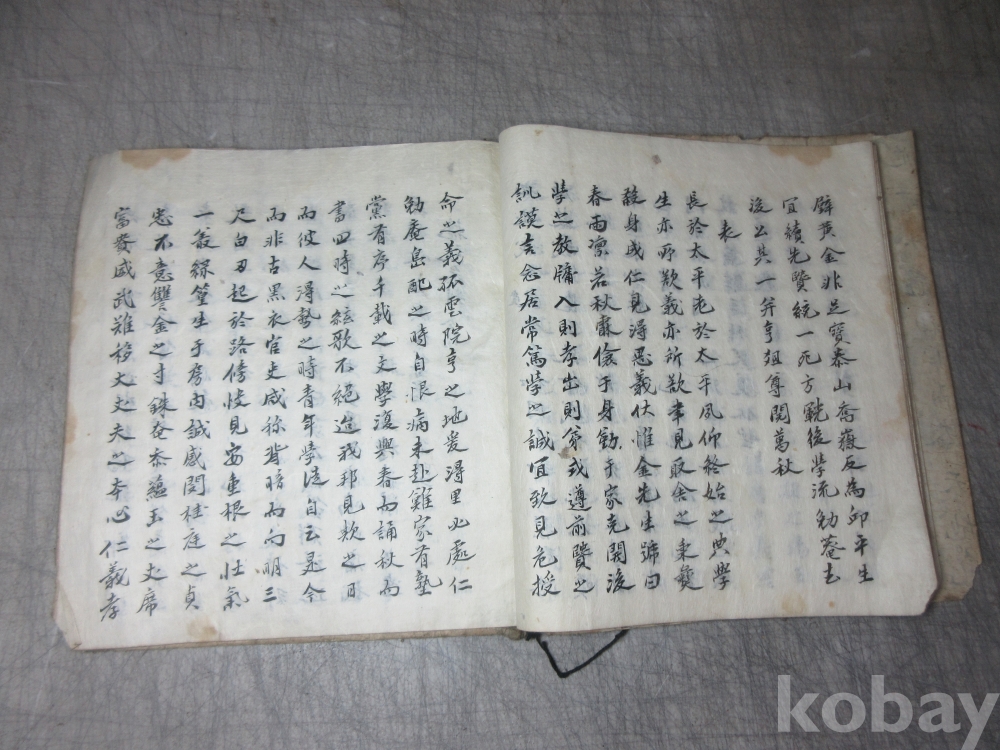 壁黃金非足寶泰山喬嶽反爲邱平生
宜續先賢統一死方觥後學流勉菴去
後公其一并亨俎尊閱萬秋
表
長於太平老於太平夙仰終始之典學
生亦所欲義亦所欲聿見取舍之秉彝
殺身成仁見得思義伏惟金先生號曰
春雨凛若秋霜儉于身勤于家克開後
學之教牖入則孝出則弟式遵前賢之
訓謨言念居常篤學之誠宜致見危授
命之義孤雲院亨之地爰得里必處仁
勉菴島配之時自恨病未赴難家有塾
黨有序千載之文學復興春而誦秋而
書四時之絃歌不絶造我邦見欺之日
而彼人得勢之時青年學徒自云是今
而非古黑衣官吏咸稱背暗而向明三
尺白刃起於路傍悽見安重根之壯氣
一叢綠篁生于房內誠感閔桂庭之貞
忠不意讐金之寸銖奄忝蘊玉之丈席
富貴威武難移大丈夫之本心仁義孝
kobay